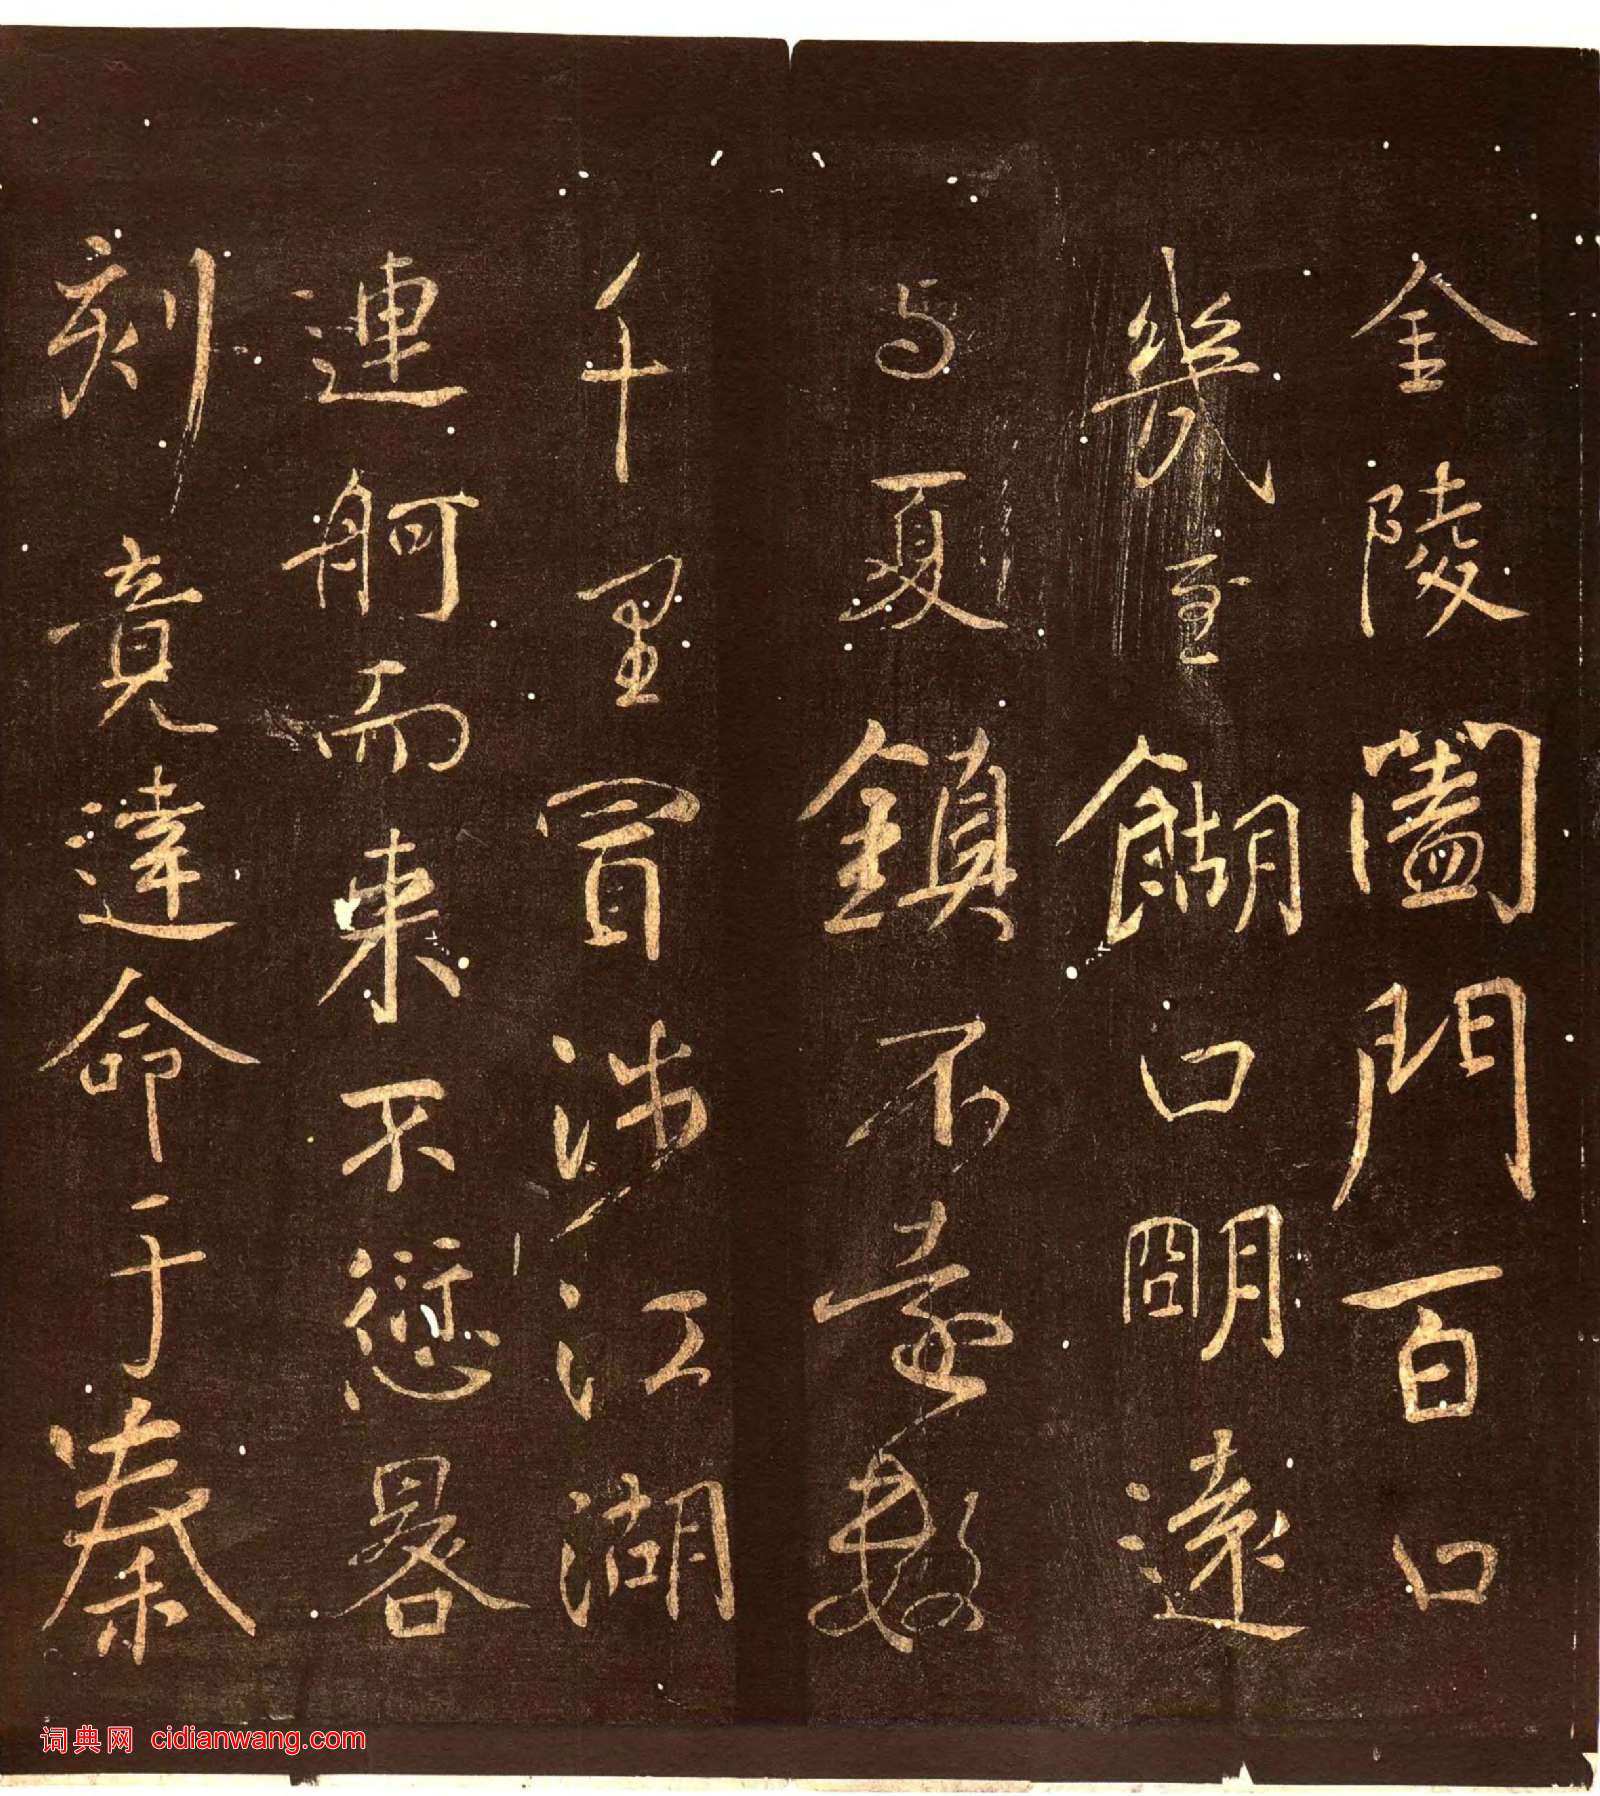 金陵闔門百口
幾至餬口明遠
与夏鎮不遠數
千里冒涉江湖
連舸而来不愆晷
刻竟達命于秦
词典网 cidianwang.com